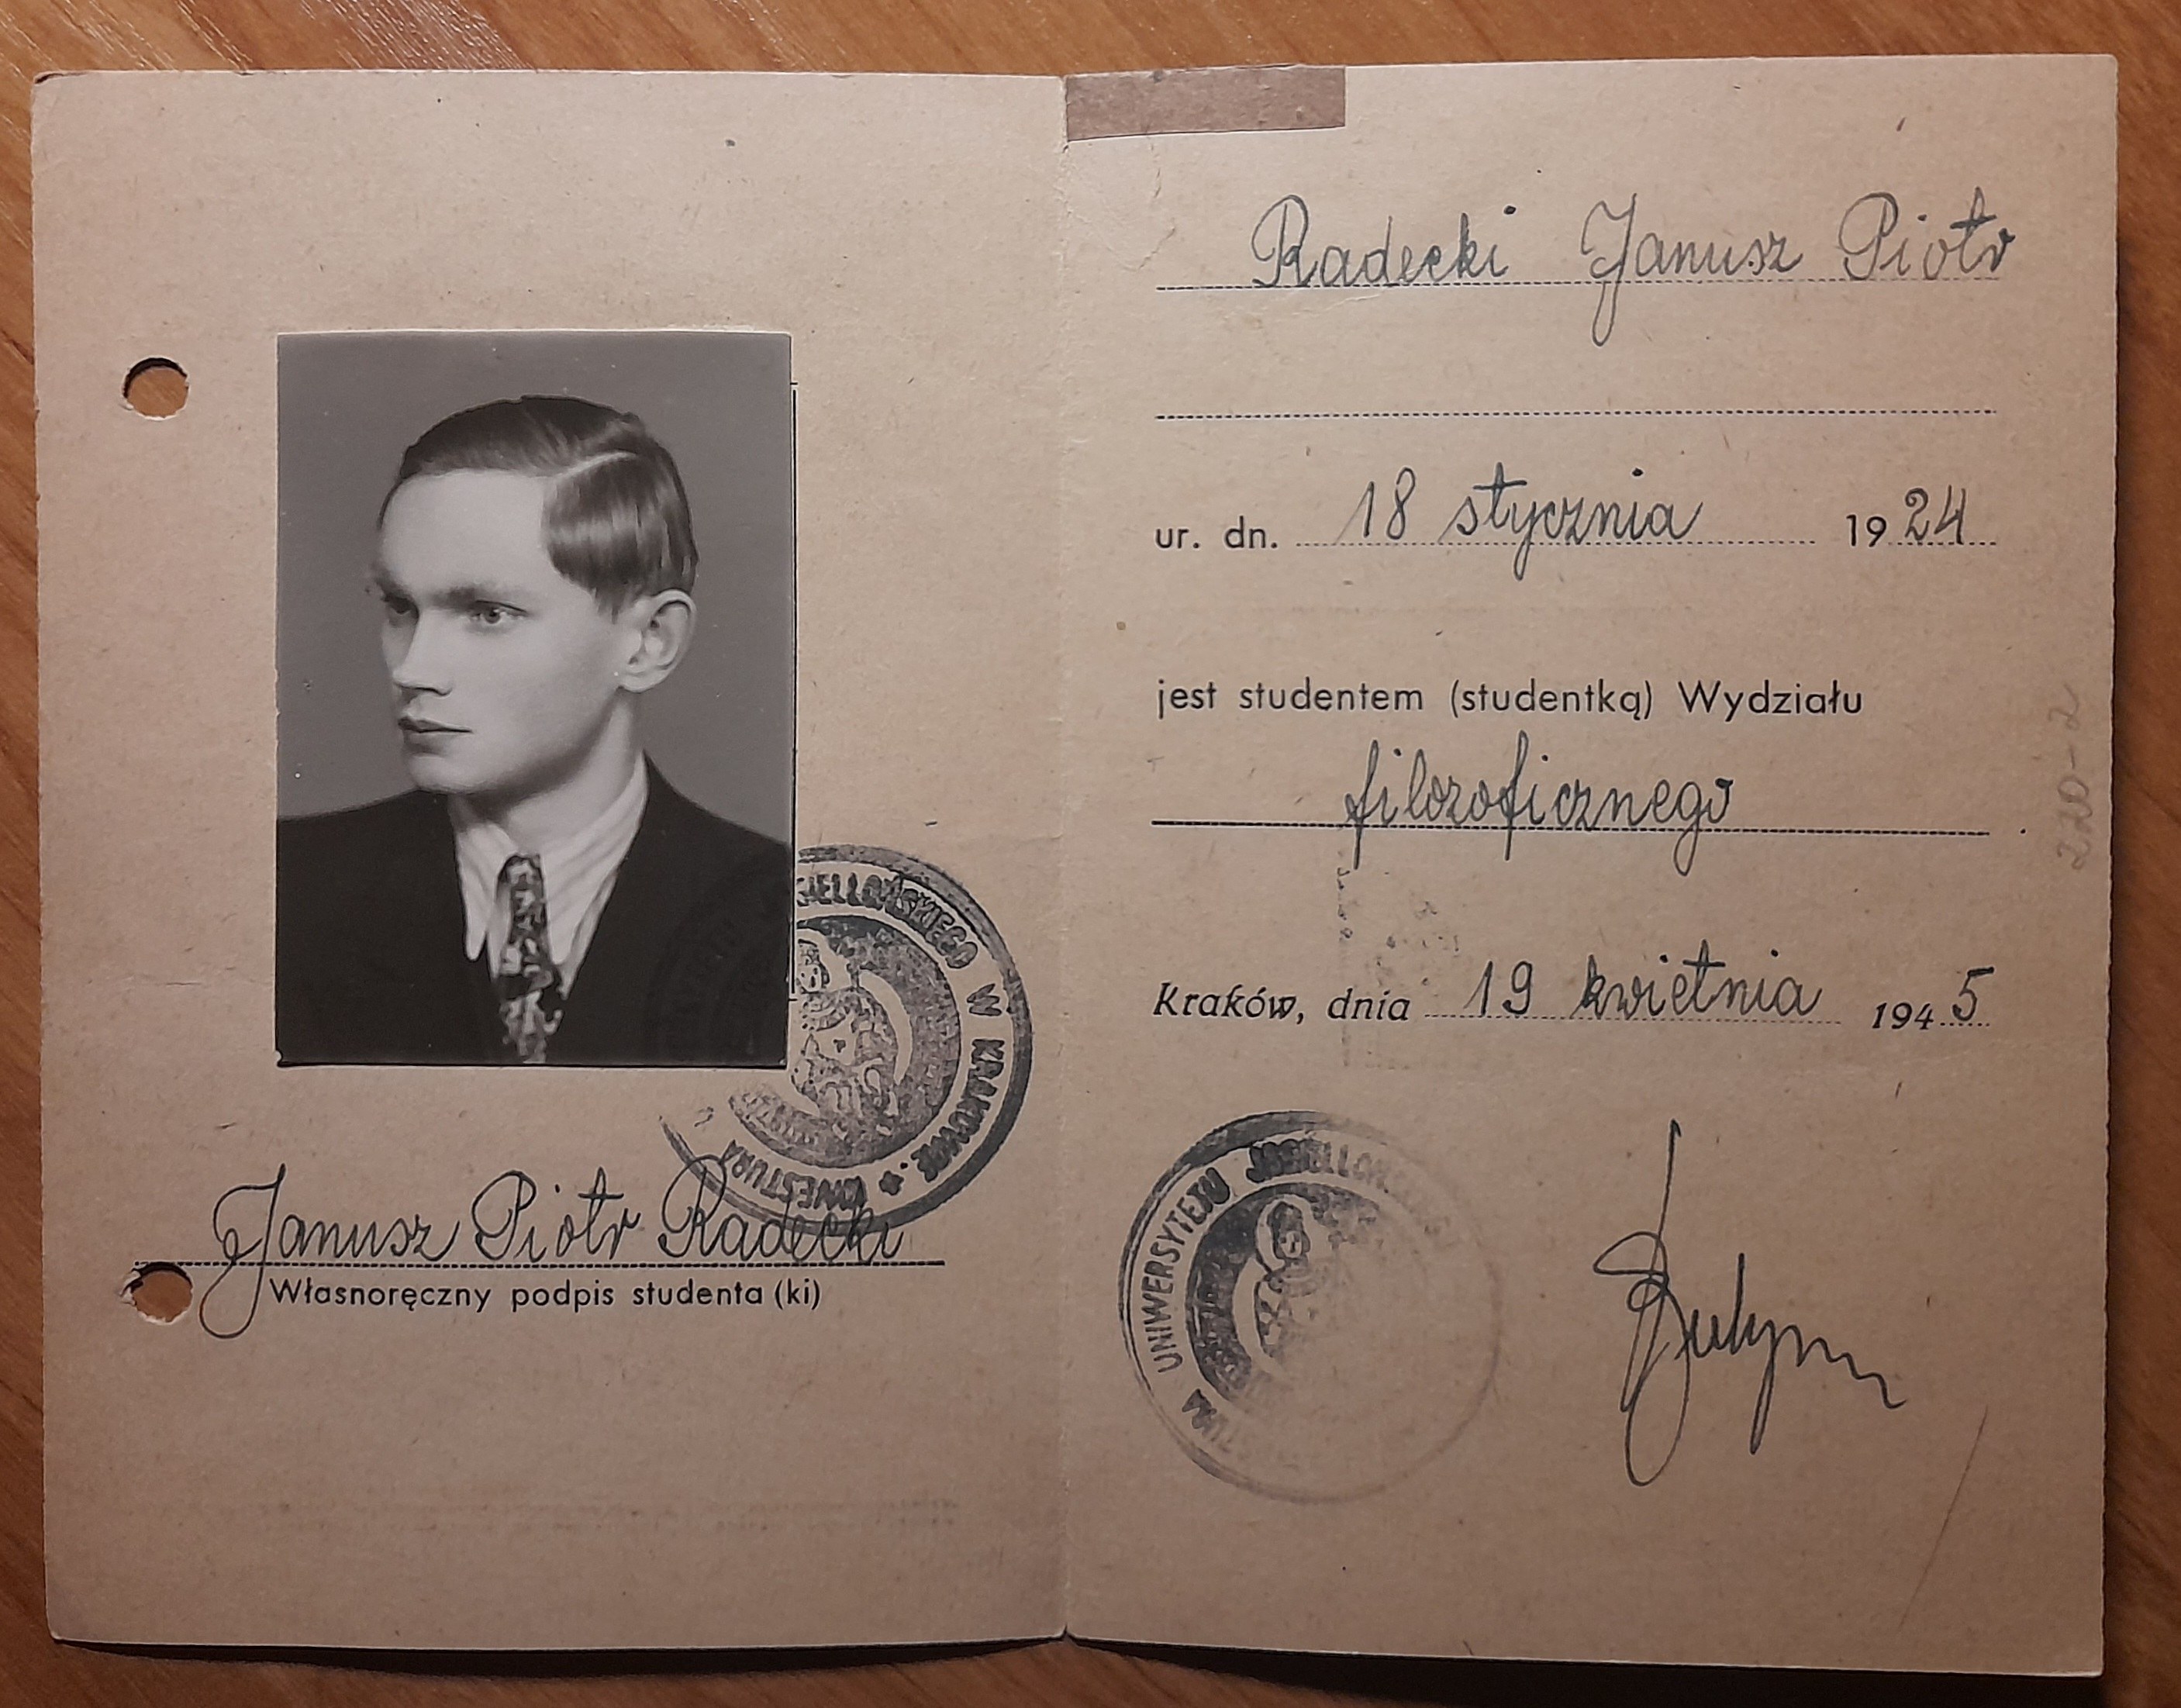 GIELLOŃSKIEGO W KRAKOWIE. + KWESTURA
Janusz Piotr Radecki
Własnoręczny podpis studenta (ki)
Radecki Janusz Piotr
ur. dn. 18 stycznia 1924
jest studentem (studentką) Wydziału
filozoficznego
Kraków, dnia 19 kwietnia 1945
UNIWERSYTETU JAGIELLOŃ
220-2